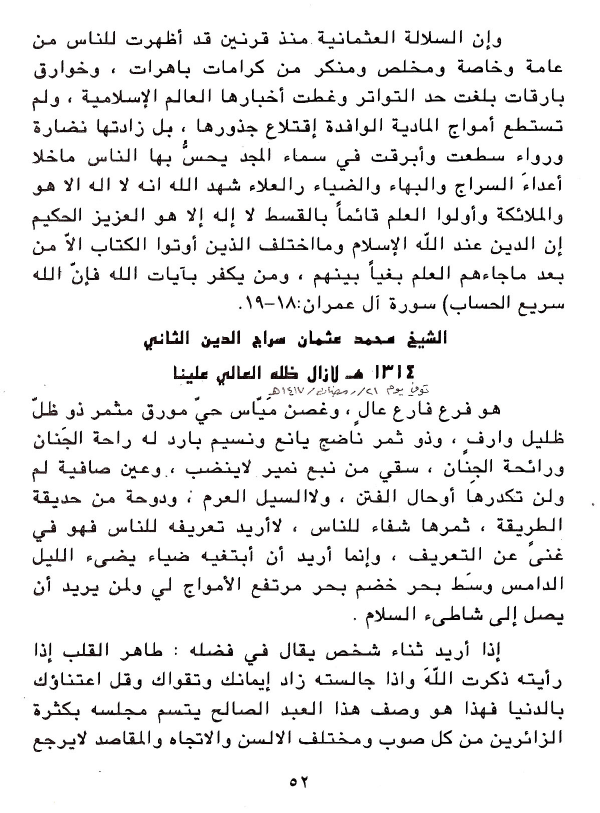 وإن السلالة العثمانية منذ قرنين قد أظهرت للناس من
عامة وخاصة ومخلص ومنكر من كرامات باهرات ، وخوارق
بارقات بلغت حد التواتر وغطت أخبارها العالم الإسلامية ، ولم
تستطع أمواج المادية الوافدة إقتلاع جذورها ، بل زادتها نضارة
ورواء سطعت وأبرقت في سماء المجد يحسُّ بها الناس ماخلا
أعداءَ السراج والبهاء والضياء رالعلاء شهد الله انه لا اله الا هو
والملائكة وأولوا العلم قائماً بالقسط لا إله إلا هو العزيز الحكيم
إن الدين عند اللّه الإسلام ومااختلف الذين أوتوا الكتاب الاّ من
بعد ماجاءهم العلم بغياً بينهم ، ومن يكفر بآيات الله فإنّ الله
سريع الحساب) سورة آل عمران:١٨-١٩.
الشيخ محمد عثمان سراج الدين الثاني
١٣١٤ هـ لازال ظله العالي علينا
توفى يوم ٢١/رمضان/١٤١٧هـ
هو فرع فارع عالٍ ، وغصن مَيّاس حيّ مورق مثمر ذو ظلّ
ظليل وارفٍ ، وذو ثمر ناضج يانع ونسيم بارد له راحة الجَنان
ورائحة الجِنان ، سقي من نبع نمير لاينضب ، وعين صافية لم
ولن تكدرها أوحال الفتن ، ولاالسيل العرم ، ودوحة من حديقة
الطريقة ، ثمرها شفاء للناس ، لاأريد تعريفه للناس فهو في
غنىً عن التعريف ، وإنما أريد أن أبتغيه ضياء يضىء الليل
الدامس وسَط بحر خضم بحر مرتفع الأمواج لي ولمن يريد أن
يصل إلى شاطىء السلام .
إذا أريد ثناء شخص يقال في فضله : طاهر القلب إذا
رأيته ذكرت اللّهَ واذا جالسته زاد إيمانك وتقواك وقل اعتناؤك
بالدنيا فهذا هو وصف هذا العبد الصالح يتسم مجلسه بكثرة
الزائرين من كل صوب ومختلف الالسن والاتجاه والمقاصد لايرجع
٥٢